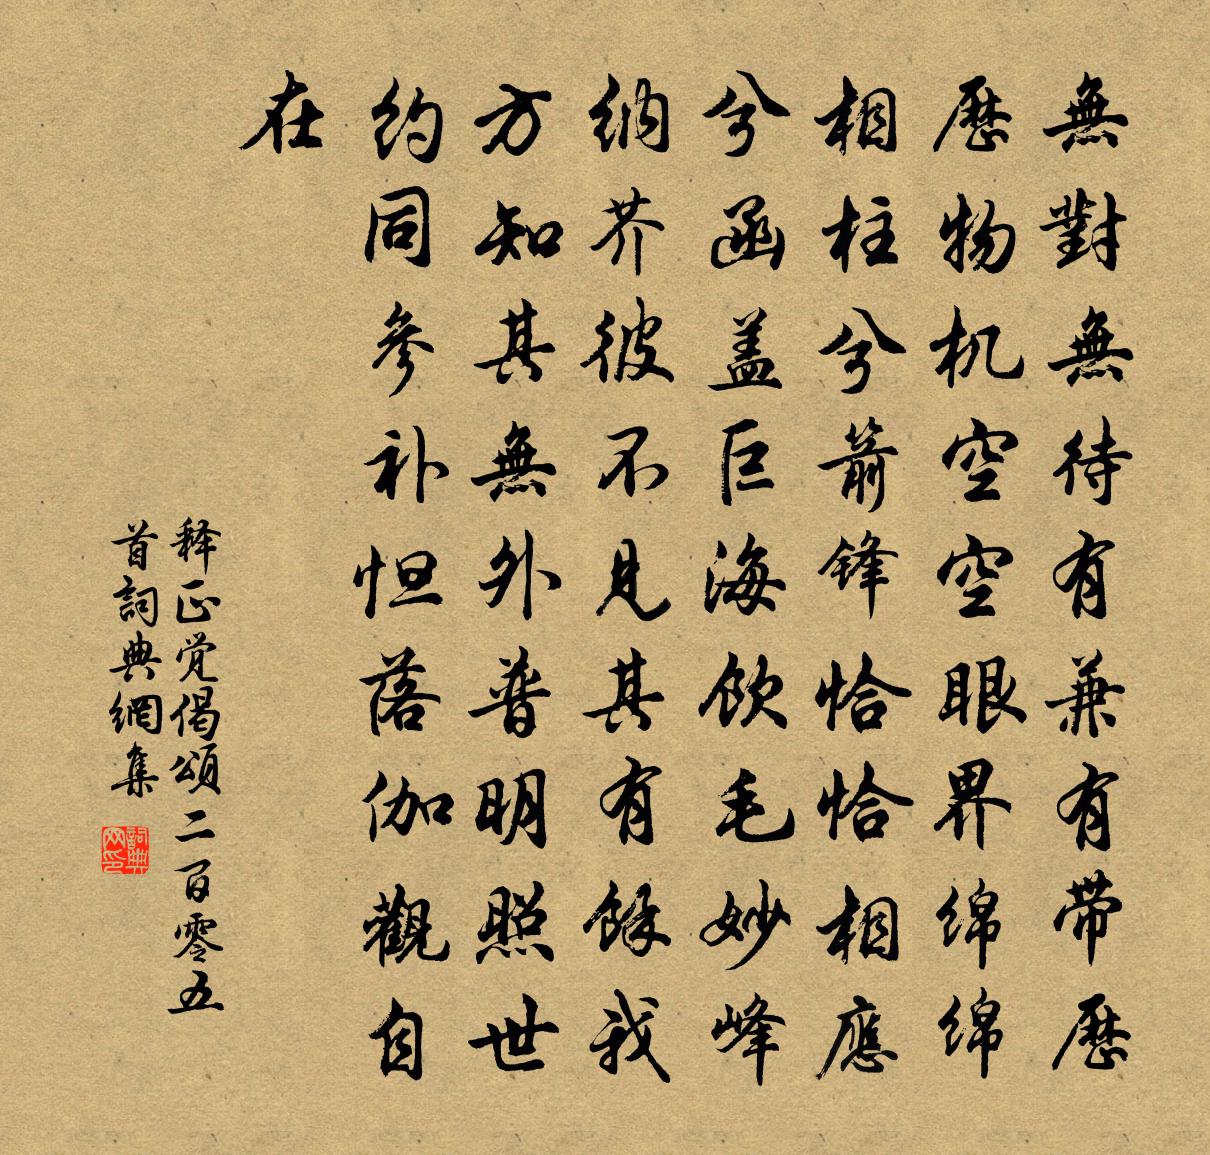 無對無待有兼有带歷
歷物机空空眼界绵绵
相柱兮箭锋恰恰相應
兮函盖巨海飲毛妙峰
納芥彼不見其有餘我
方知其無外普明照世
约同參补怛落伽觀自
在
释正觉偈頌二百零五
首詞典網集
詞典网印